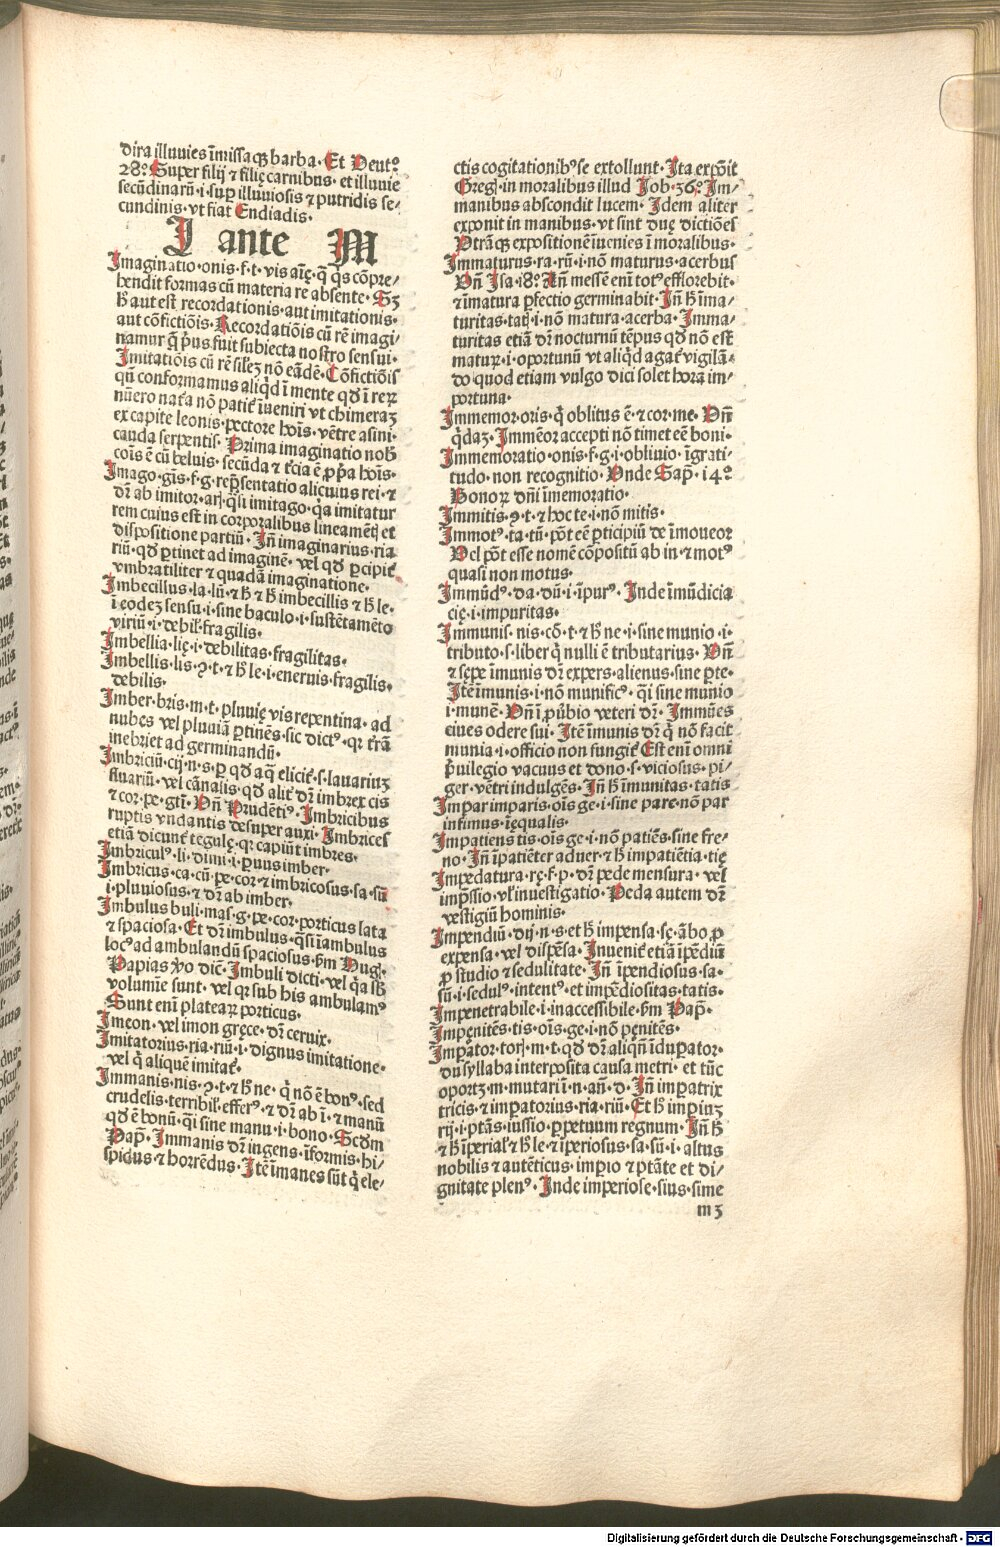 dira illuuies īmissa qꝫ barba. Et Deut.º
28.º Super filij ⁊ filię carnibus. et illuuie
secūdinarū .i. suꝑ illuuiosis ⁊ putridis se-
cundinis. vt fiat Endiadis.
I ante M
Imaginatio. onis. f. t. vis aīę. q̄ q̄s cōpre-
hendit formas cū materia re absente. Sꝫ
h̄ aut est recordationis. aut imitationis.
aut cōfictiōis. Recordatiōis cū rē imagi
namur q̄ p̄us fuit subiecta nostro sensui.
Imitatiōis cū rē silēꝫ nō eādē. Cōfictiōis
qn̄ conformamus aliqd ī mente qd̄ ī reꝝ
nūero nat̄a nō patit̄ īueniri vt chimeraꝫ
ex capite leonis. pectore hoīs. vētre asini.
cauda serpentis. Prima imaginatio nob̄
coīs ē cū beluis. secūda ⁊ t̄cia ē ꝓp̄a hoīs.
Imago. gīs. f. g. rep̄sentatio alicuius rei. ⁊
dr̄ ab imitor. arꝭ. q̄si imitago. q̄a imitatur
rem cuius est in corporalibus lineamētꝭ et
dispositione partiū. Iñ imaginarius. ria
riū. qd̄ ꝑtinet ad imaginē. vel qd̄ ꝑcipit̄
vmbratiliter ⁊ quadā imaginatione.
Imbecillus. la. lū. ⁊ h̄ ⁊ h̄ imbecillis ⁊ h̄ le.
ī eodeꝫ sensu .i. sine baculo .i. sustētamēto
viriū .i. debil̓. fragilis.
Imbellia. lię. i. debilitas. fragilitas.
Imbellis. lis. ꝯ. t. ⁊ h̄ le .i. eneruis. fragilis.
debilis.
Imber. bris. m. t. pluuię vis repentina. ad
nubes vel pluuiā ꝑtinēs. sic dictꝰ. qꝛ t̄rā
inebriet ad germinandū.
Imbriciū. cij. n. s. ꝑ qd̄ aq̄ elicit̄. s. lauariuꝫ
fluariū. vel canalis. qd̄ alit̄ dr̄ imbrex cis
⁊ cor. pe. gtī. Vn̄ Prudētiꝰ. Imbricibus
ruptis vndantis desuper auxi. Imbrices
etiā dicunt̄ tegulę. qꝛ capiūt imbres.
Imbriculꝰ. li. dimi. i. ꝑuus imber.
Imbricus. ca. cū. pe. cor. ⁊ imbricosus. sa. sū
i. pluuiosus. ⁊ dr̄ ab imber.
Imbulus buli. mas. g. pe. cor. porticus lata
⁊ spaciosa. Et dr̄ imbulus. q̄si īambulus
locꝰ ad ambulandū spaciosus. ẜm Hugꝭ.
Papias v̓o dic̄. Imbuli dicti. vel q̄a ib̄
volumīe sunt. vel qꝛ sub his ambulamꝰ
Sunt enī plateaꝝ porticus.
Imeon. vel imon gręce. dr̄ ceruix.
Imitatorius. ria. riū. i. dignus imitatione.
vel q̄ aliquē imitat̄.
Immanis. nis. ꝯ. t. ⁊ h̄ ne. q̄ nō ē bonꝰ. sed
crudelis. terribil̓. efferꝰ. ⁊ dr̄ ab ī. ⁊ manū
qd̄ ē bonū. q̄i sine manu .i. bono. Scdm
Pap̄. Immanis dr̄ ingens. īformis. hi-
spidus ⁊ horrēdus. Itē īmanes sūt q̄ ele-
ctis cogitationibꝰ se extollunt. Ita expōit
Gregꝭ. in moralibus illud Job. 36.º Im-
manibus abscondit lucem. Idem aliter
exponit in manibus. vt sint duę dictiōes
Vtrāqꝫ expositionē īuenies ī moralibus.
Immaturus. ra. rū. i. nō maturus. acerbus
Vn̄ Isa. 18.º Añ messē enī totꝰ efflorebit.
⁊ īmatura ꝑfectio germinabit. Iñ h̄ īma-
turitas. tatꝭ. i. nō matura. acerba. Imma-
turitas etiā dr̄ nocturnū tēpus qd̄ nō est
matuꝝ. i. oportunū vt aliqd̄ agat̄ vigilā-
do quod etiam vulgo dici solet hora im-
portuna.
Immemor. oris. q̄ oblitus ē. ⁊ cor. me. Vn̄
q̄daꝫ. Immēor accepti nō timet eē boni.
Immemoratio. onis. f. g. i. obliuio. īgrati-
tudo. non recognitio. Vnde Sap̄. 14.º
Bonoꝝ dn̄i īmemoratio.
Immitis. ꝯ. t. ⁊ hoc te. i. nō mitis.
Immotꝰ. ta. tū. pōt eē ꝑticipiū de īmoueor
Vel pōt esse nomē cōpositū ab in. ⁊ motꝰ
quasi non motus.
Immūdꝰ. da. dū. i. īpurꝰ. Inde īmūdicia
cię. i. impuritas.
Immunis. nis. cō. t. ⁊ h̄ ne .i. sine munio .i.
tributo. s. liber q̄ nulli ē tributarius. Vn̄
⁊ sępe īmunis dr̄ expers. alienus. sine ꝑte.
Itē īmunis .i. nō munificꝰ. q̄i sine munio
i. munē. Vn̄ ī ꝓūbio veteri dr̄. Immūes
ciues odere sui. Itē īmunis dr̄ q̄ nō facit
munia .i. officio non fungit̄ Est enī omni
p̄uilegio vacuus et dono. s. viciosus. pi-
ger. vētri indulgēs. Iñ h̄ īmunitas. tatis
Impar imparis. oīs ge. i. sine pare. nō par
infimus. īęqualis.
Impatiens tis. oīs ge. i. nō patiēs. sine fre-
no. Iñ īpatiēter aduer. ⁊ h̄ impatiētia. tię
Impedatura. rę. f. p. dr̄ pede mensura. vel
imp̄ssio. vl̓ inuestigatio. Peda autem dr̄
vestigiū hominis.
Impendiū. dij. n. s. et h̄ impensa. sę. ābo ꝓ
expensa. vel dispēsa. Inuenit̄ etiā īpēdiū
ꝓ studio ⁊ sedulitate. Iñ īpendiosus. sa.
sū. i. sedulꝰ. intentꝰ. et impēdiositas. tatis.
Impenetrabile. i. inaccessibile. ẜm Pap̄.
Impenitēs. tis. oīs. ge. i. nō pęnitēs.
Impātor. torꝭ. m. t. qd̄ dr̄ aliqn̄ īduꝑator.
du syllaba interposita causa metri. et tūc
oportꝫ. m. mutari ī. n. añ. d. Iñ imꝑatrix
tricis. ⁊ imꝑatorius. ria. riū. Et h̄ imꝑiuꝫ
rij. i. ptās. iussio. ꝑpetuum regnum. Iñ h̄
⁊ h̄ īperial̓ ⁊ h̄ le. ⁊ īperiosus. sa. sū. i. altus
nobilis ⁊ autēticus. impio ⁊ ptāte et di-
gnitate plenꝰ. Inde imperiose. sius. sime
m 3
Digitalisierung gefördert durch die Deutsche Forschungsgemeinschaft - DFG